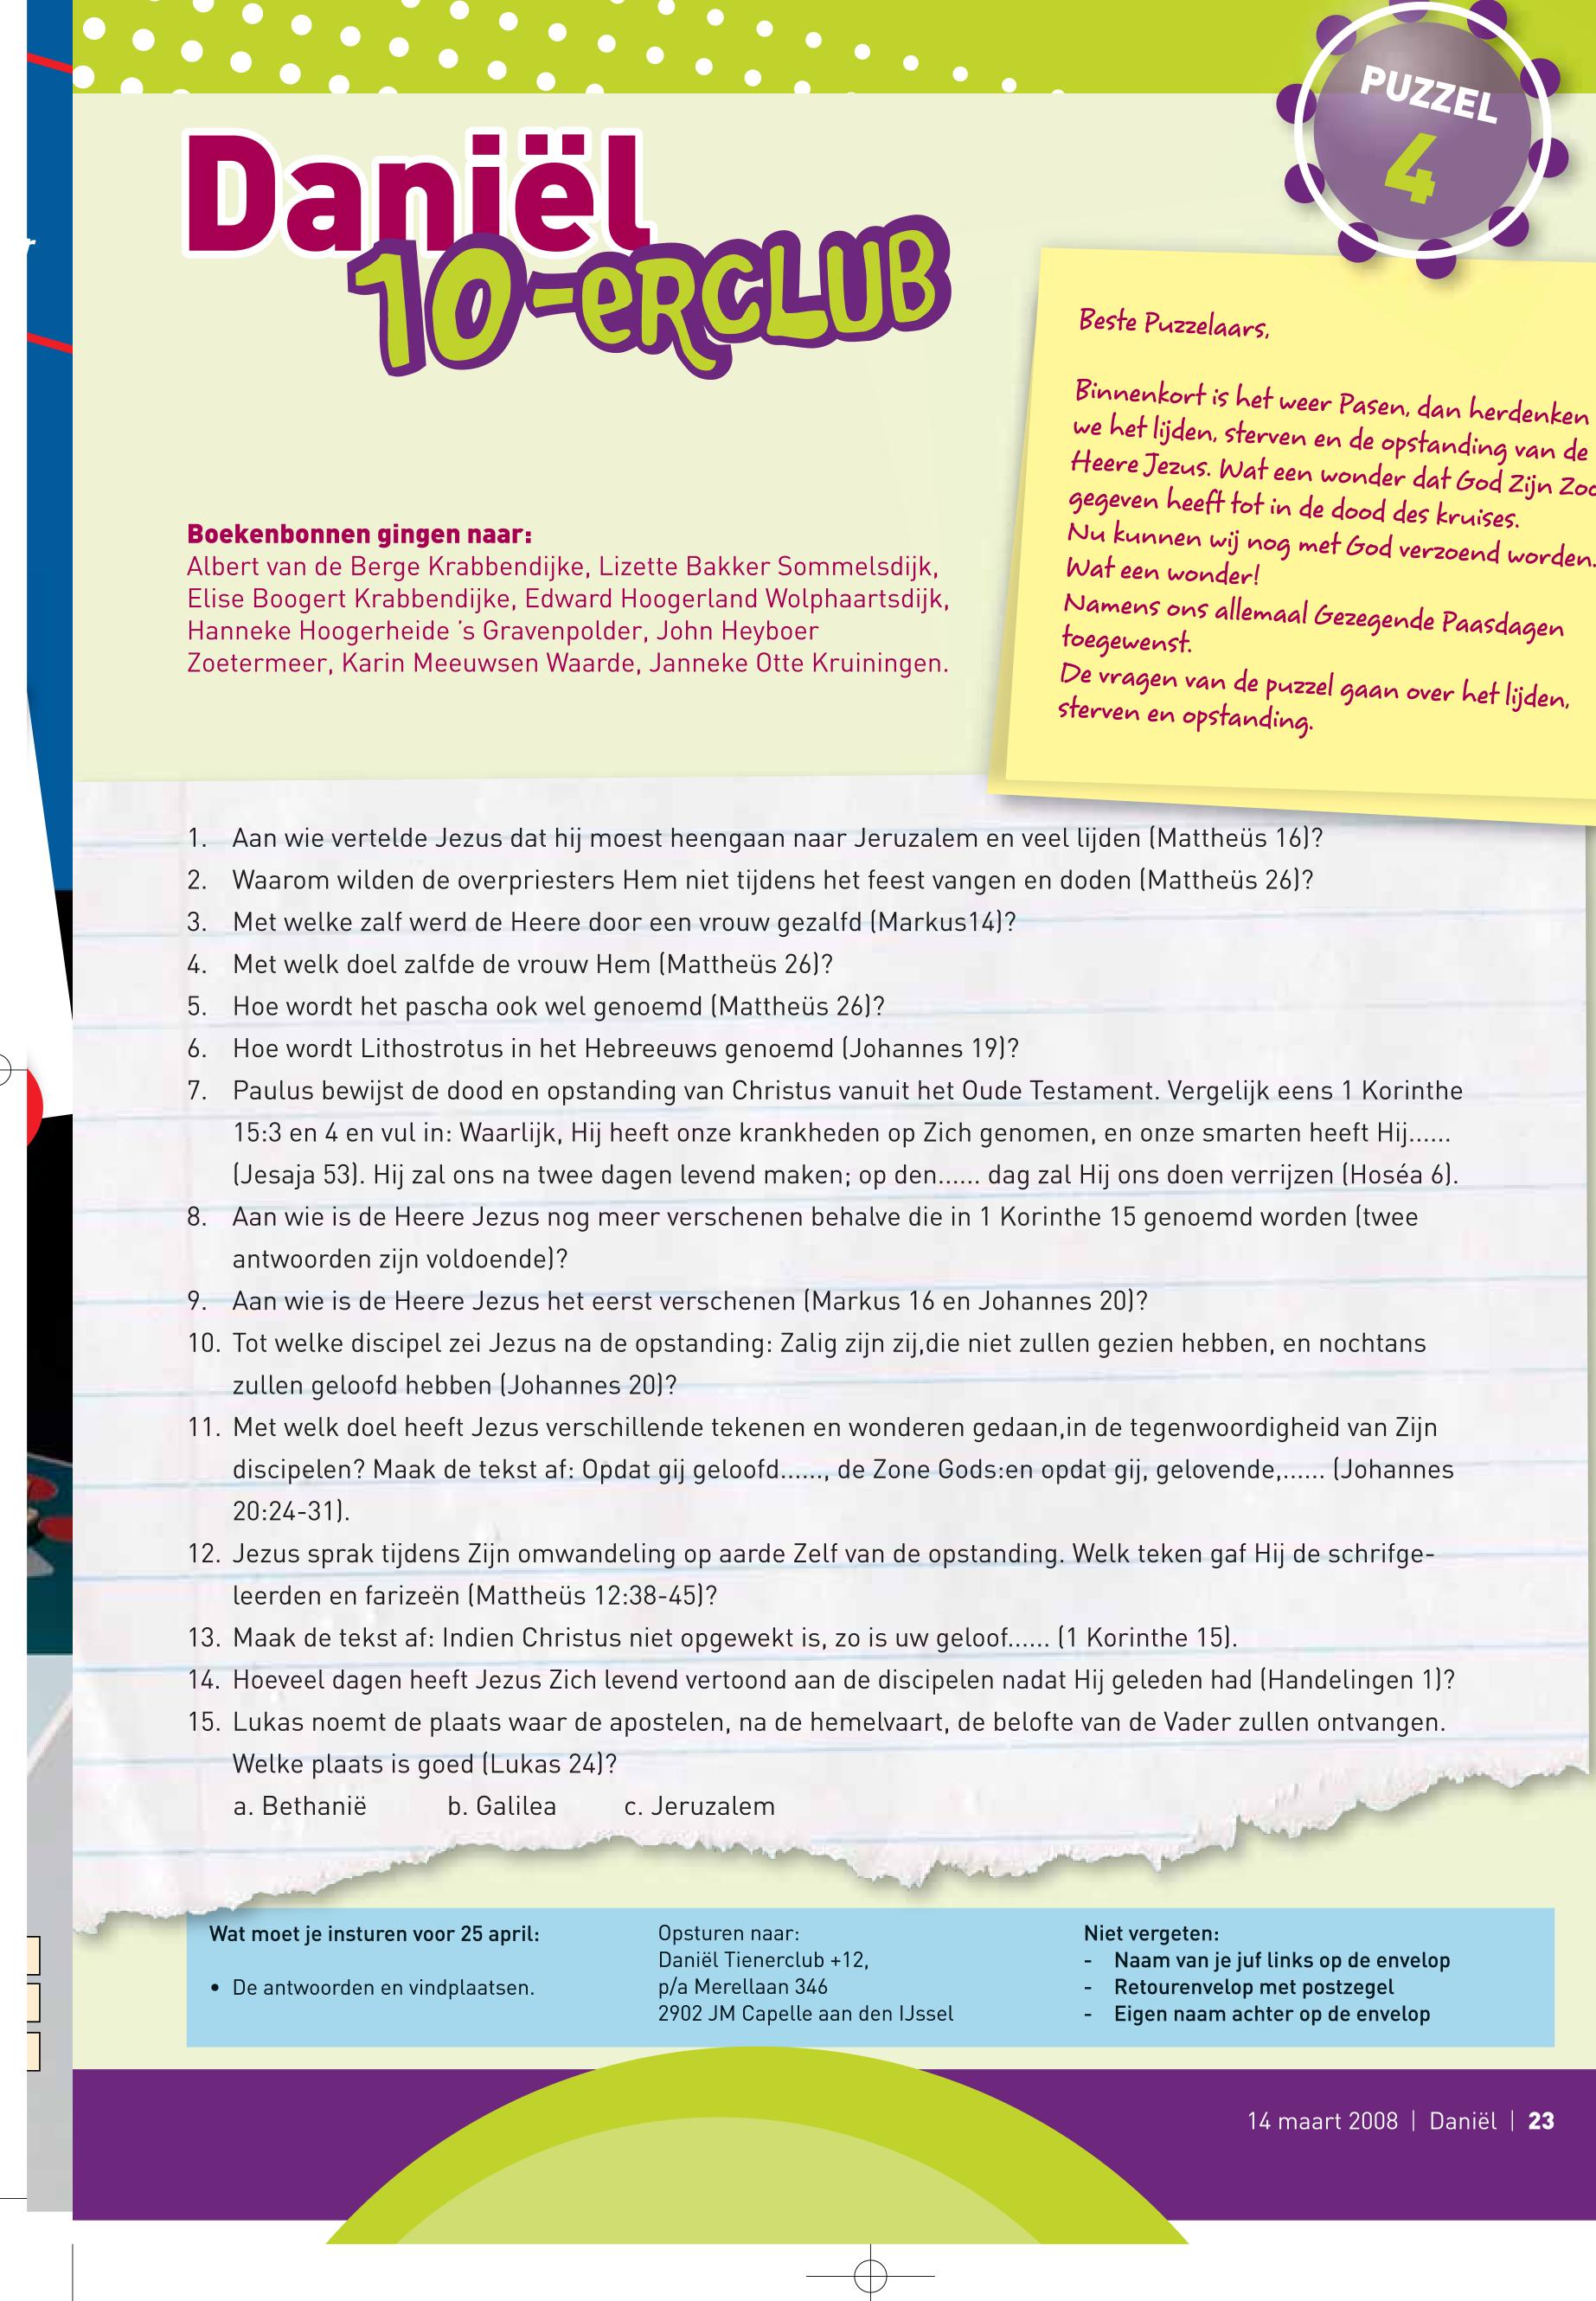 PUZZEL
4
Daniël
10-erclub
Beste Puzzelaars,
Binnenkort is het weer Pasen, dan herdenken
we het lijden, sterven en de opstanding van de
Heere Jezus. Wat een wonder dat God Zijn
gegeven heeft tot in de dood des kruises.
Nu kunnen wij nog met God verzoend worden.
Wat een wonder!
Namens ons allemaal Gezegende Paasdagen
toegewenst.
De vragen van de puzzel gaan over het lijden,
sterven en opstanding.
Boekenbonnen gingen naar:
Albert van de Berge Krabbendijke, Lizette Bakker Sommelsdijk,
Elise Boogert Krabbendijke, Edward Hoogerland Wolphaartsdijk,
Hanneke Hoogerheide ’s Gravenpolder, John Heyboer
Zoetermeer, Karin Meeuwsen Waarde, Janneke Otte Kruiningen.
1. Aan wie vertelde Jezus dat hij moest heengaan naar Jeruzalem en veel lijden (Mattheüs 16)?
2. Waarom wilden de overpriesters Hem niet tijdens het feest vangen en doden (Mattheüs 26)?
3. Met welke zalf werd de Heere door een vrouw gezalfd (Markus14)?
4. Met welk doel zalfde de vrouw Hem (Mattheüs 26)?
5. Hoe wordt het pascha ook wel genoemd (Mattheüs 26)?
6. Hoe wordt Lithostrotus in het Hebreeuws genoemd (Johannes 19)?
7. Paulus bewijst de dood en opstanding van Christus vanuit het Oude Testament. Vergelijk eens 1 Korinthe
15:3 en 4 en vul in: Waarlijk, Hij heeft onze krankheden op Zich genomen, en onze smarten heeft Hij......
(Jesaja 53). Hij zal ons na twee dagen levend maken; op den...... dag zal Hij ons doen verrijzen (Hoséa 6).
8. Aan wie is de Heere Jezus nog meer verschenen behalve die in 1 Korinthe 15 genoemd worden (twee
antwoorden zijn voldoende)?
9. Aan wie is de Heere Jezus het eerst verschenen (Markus 16 en Johannes 20)?
10. Tot welke discipel zei Jezus na de opstanding: Zalig zijn zij,die niet zullen gezien hebben, en nochtans
zullen geloofd hebben (Johannes 20)?
11. Met welk doel heeft Jezus verschillende tekenen en wonderen gedaan,in de tegenwoordigheid van Zijn
discipelen? Maak de tekst af: Opdat gij geloofd......, de Zone Gods:en opdat gij, gelovende,...... (Johannes
20:24-31).
12. Jezus sprak tijdens Zijn omwandeling op aarde Zelf van de opstanding. Welk teken gaf Hij de schrifge-
leerden en farizeën (Mattheüs 12:38-45)?
13. Maak de tekst af: Indien Christus niet opgewekt is, zo is uw geloof...... (1 Korinthe 15).
14. Hoeveel dagen heeft Jezus Zich levend vertoond aan de discipelen nadat Hij geleden had (Handelingen 1)?
15. Lukas noemt de plaats waar de apostelen, na de hemelvaart, de belofte van de Vader zullen ontvangen.
Welke plaats is goed (Lukas 24)?
a. Bethanië b. Galilea c. Jeruzalem
Wat moet je insturen voor 25 april:
• De antwoorden en vindplaatsen.
Opsturen naar:
Daniël Tienerclub +12,
p/a Merellaan 346
2902 JM Capelle aan den IJssel
Niet vergeten:
- Naam van je juf links op de envelop
- Retourenvelop met postzegel
- Eigen naam achter op de envelop
14 maart 2008 | Daniël | 23